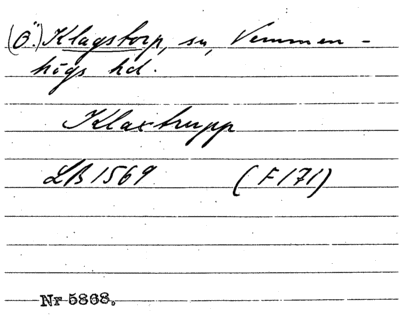 (Ö.) Klagstorp, sn, Vemmen-
högs hd.
Klaxtrupp
LB 1569 (F 171)
Nr 5868.